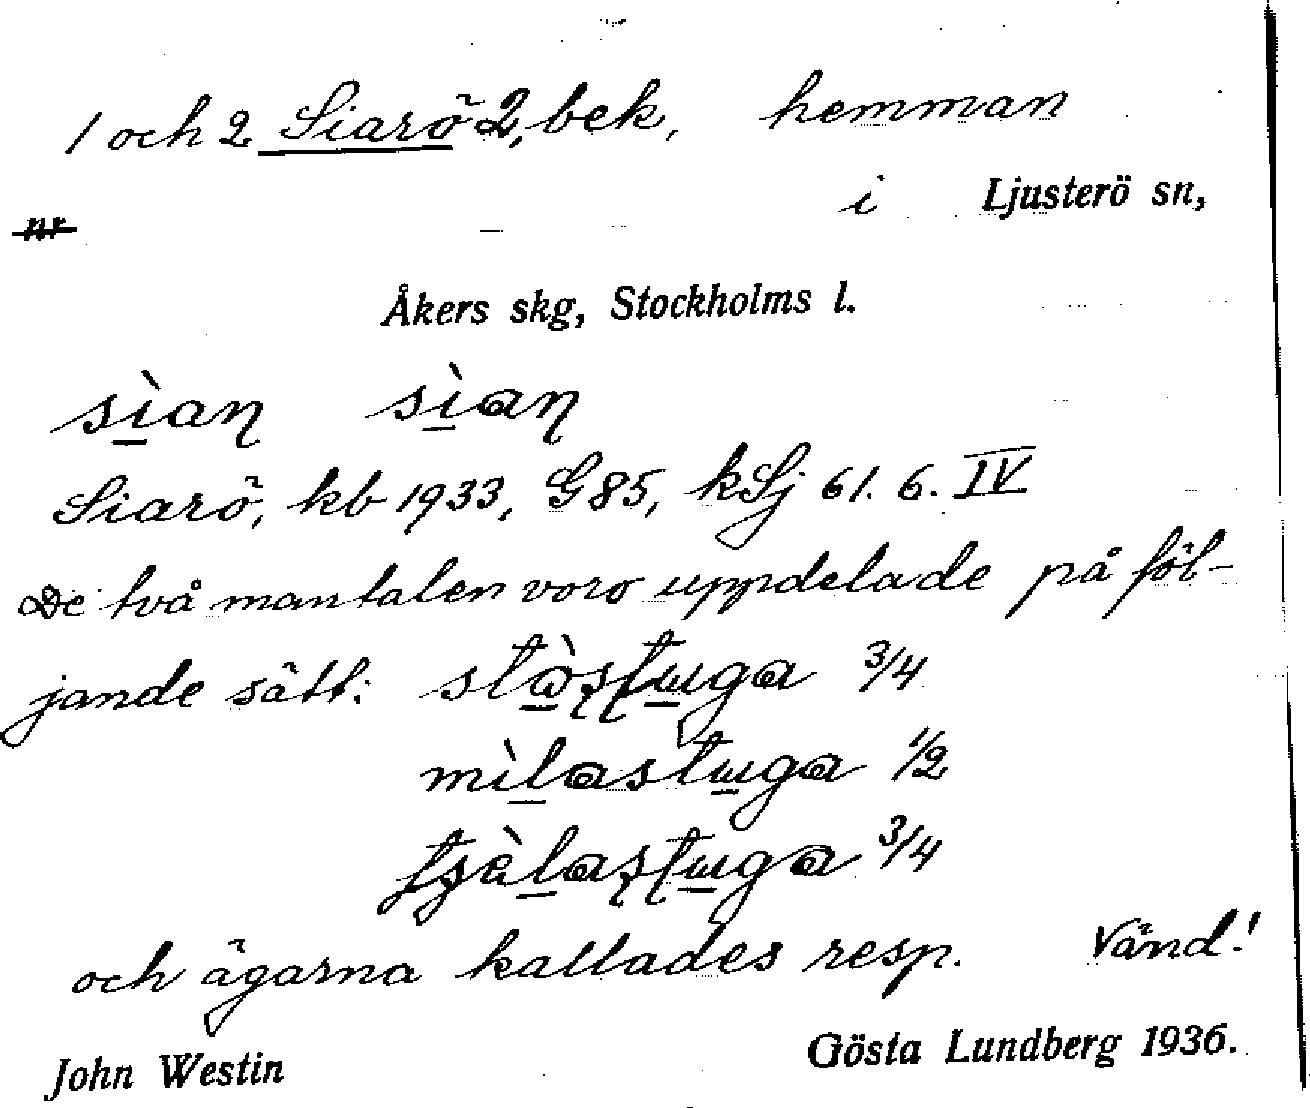 1 och 2 Siarö 2, bek, hemman
i Ljusterö sn,
nr
Åkers skg, Stockholms l.
sìaɳ sìaɳ
Siarö, kb 1933, G 85, kSj 61. 6. IV
De två mantalen voro uppdelade på föl-
jande sätt: 3/4
mìlastɯga 1/2
3/4
och ägarna kallades resp. Vänd!
John Westin Gösta Lundberg 1936.